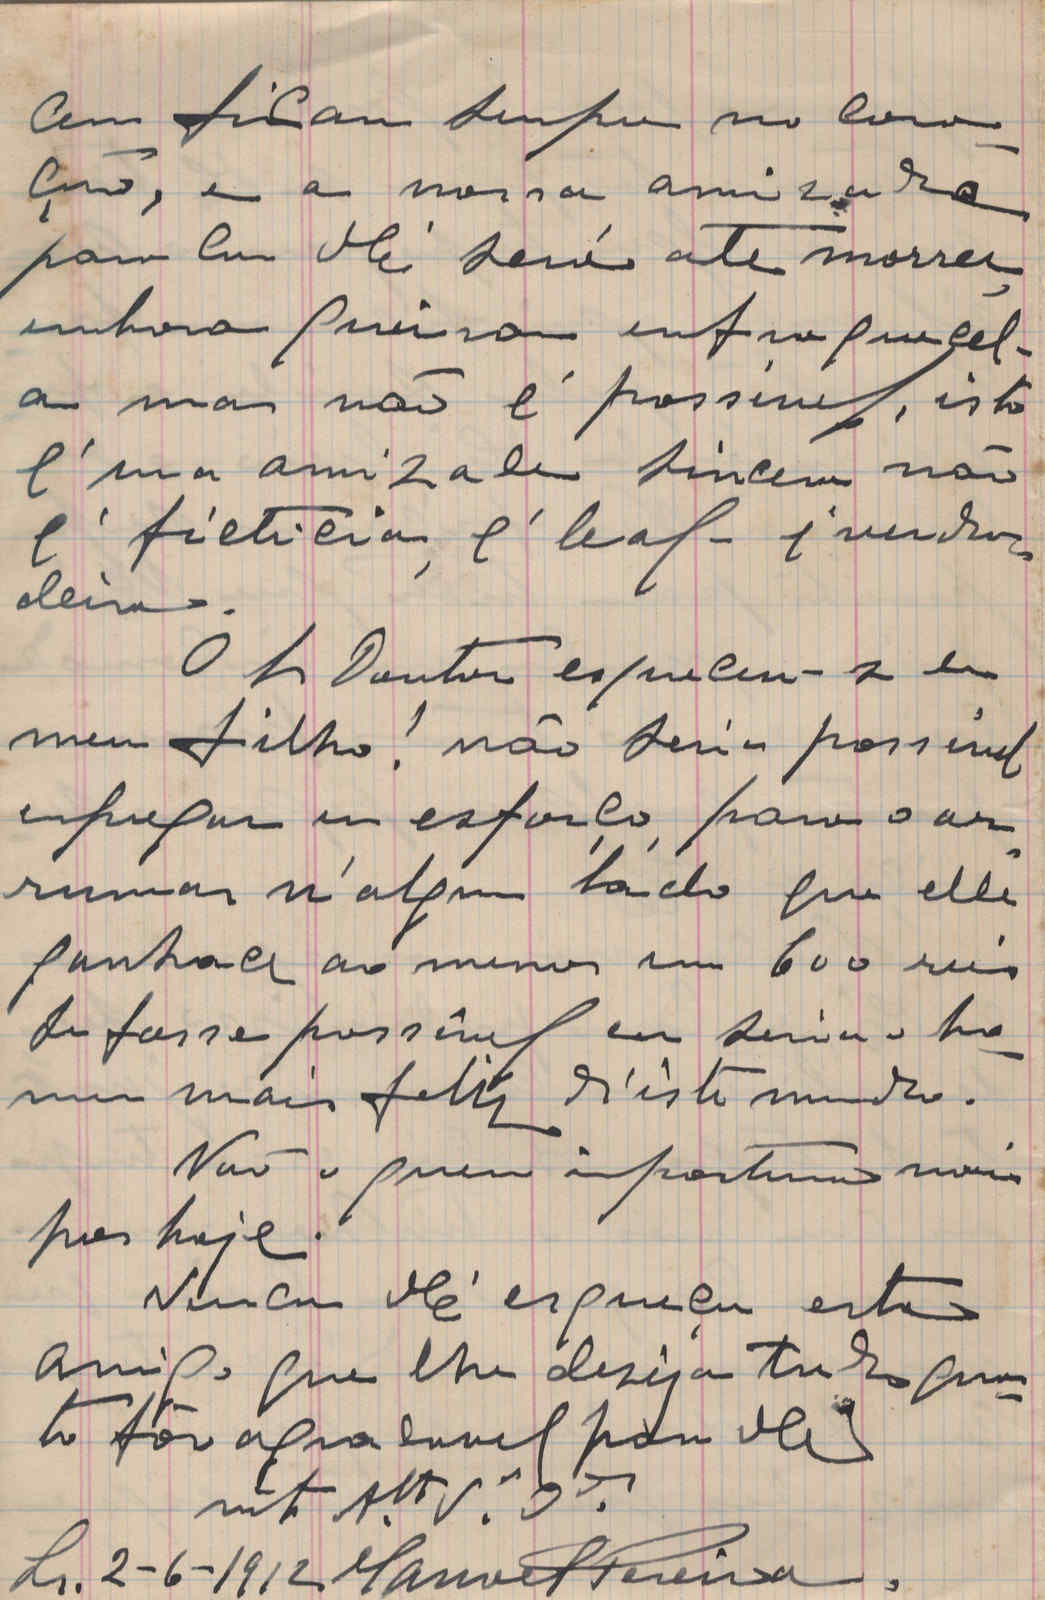 cem ficam sempre no cora-
ção, e a nossa amizade
para com Vcê será até morrer,
embora queiram enfraquecel-
a mas não é possivel, isto
é uma amizade sincera não
é ficticia, é leal é verda-
deira.
O Sr Doutor esqueceu-se de
meu filho! não seria possivel
empregar um esforço para o ar-
rumar n'algum lado que elle
ganhace ao menos um 600 reis
se fosse possivel eu seria o ho-
mem mais feliz d'este mundo.
Não o quero importunar mais
por hoje.
Nunca Vcê esqueça este
amigo que lhe deseja tudo quan-
to fôr agradavel para Vcê
mto Att. V.
Lx. 2-6-1912 Manoel Pereira.